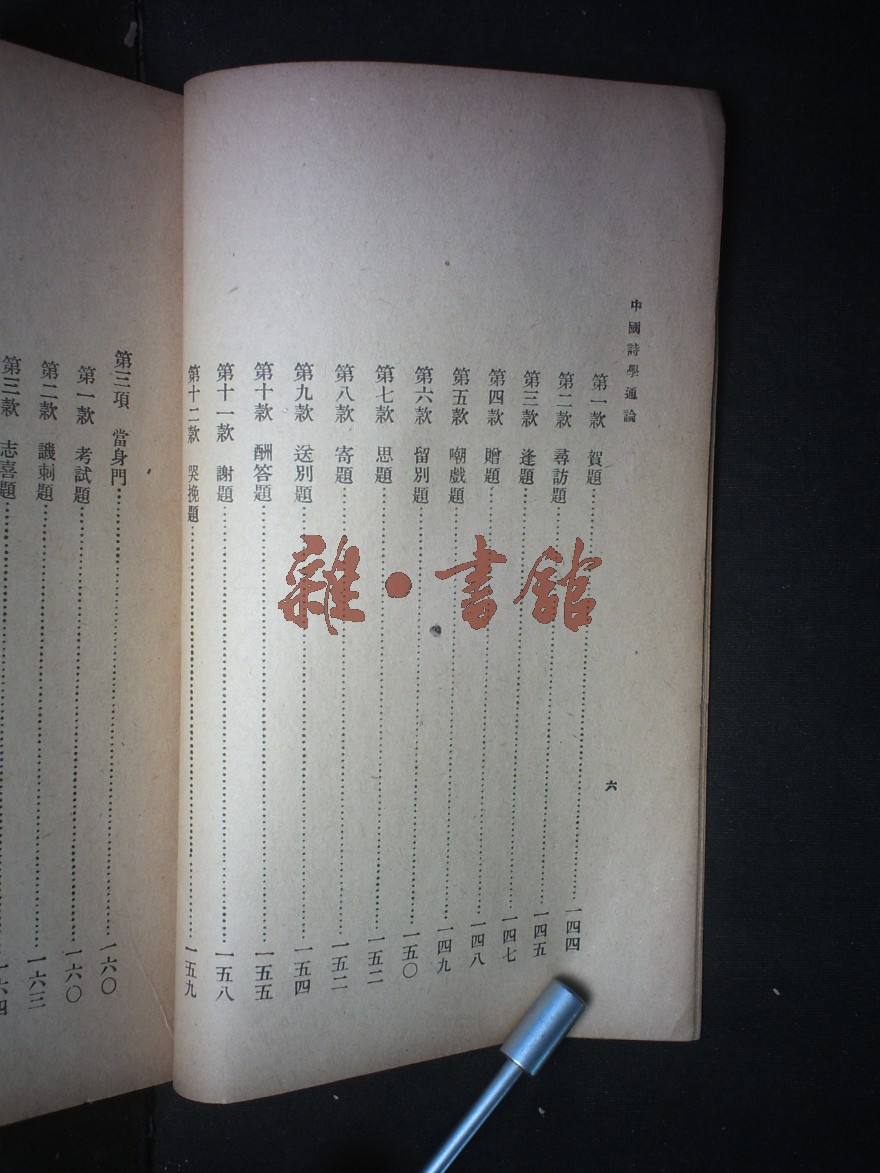 中國詩學通論
六
第一款 賀題……一四四
第二款 尋訪題……一四五
第三款 逢題……一四七
第四款 贈題……一四八
第五款 嘲戲題……一四九
第六款 留別題……一五〇
第七款 思題……一五二
第八款 寄題……一五二
第九款 送別題……一五四
第十款 酬答題……一五五
第十一款 謝題……一五八
第十二款 哭挽題……一五九
第三項 當身門……一六〇
第一款 考試題……一六〇
第二款 譏刺題……一六三
第三款 志喜題……一六四
雜·書館